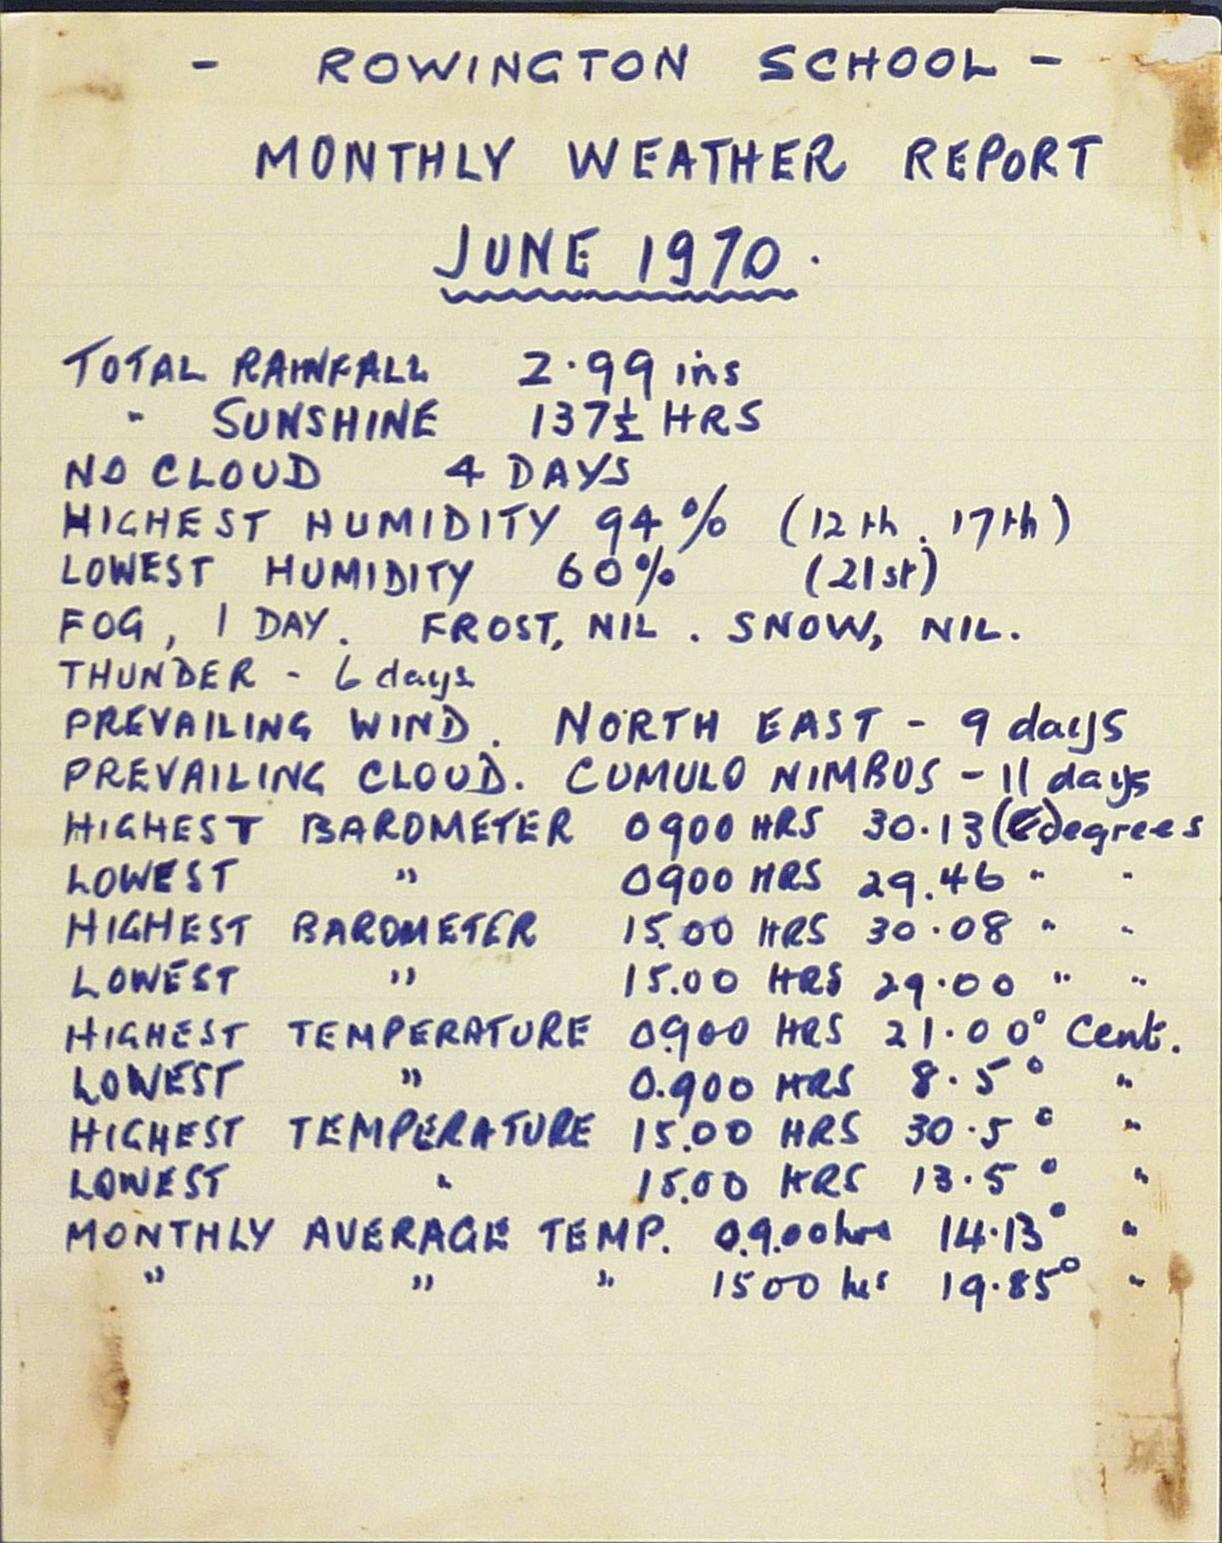 - ROWINGTON SCHOOL -
MONTHLY WEATHER REPORT
JUNE 1970.
TOTAL RAINFALL 2.99 ins
" SUNSHINE 137½ HRS
NO CLOUD 4 DAYS
HIGHEST HUMIDITY 94% (12th. 17th)
LOWEST HUMIDITY 60% (21st)
FOG, 1 DAY. FROST, NIL. SNOW, NIL.
THUNDER - 6 days
PREVAILING WIND. NORTH EAST - 9 days
PREVAILING CLOUD. CUMULO NIMBUS - 11 days
HIGHEST BAROMETER 0900 HRS 30.13 degrees
LOWEST " 0900 HRS 29.46 " "
HIGHEST BAROMETER 15.00 HRS 30.08 " "
LOWEST " 15.00 HRS 29.00 " "
HIGHEST TEMPERATURE 0900 HRS 21.00° Cent.
LOWEST " 0.900 HRS 8.5° "
HIGHEST TEMPERATURE 15.00 HRS 30.5° "
LOWEST " 15.00 HRS 13.5° "
MONTHLY AVERAGE TEMP. 0.9.00 hrs 14.13° "
" " " 1500 hrs 19.85° "